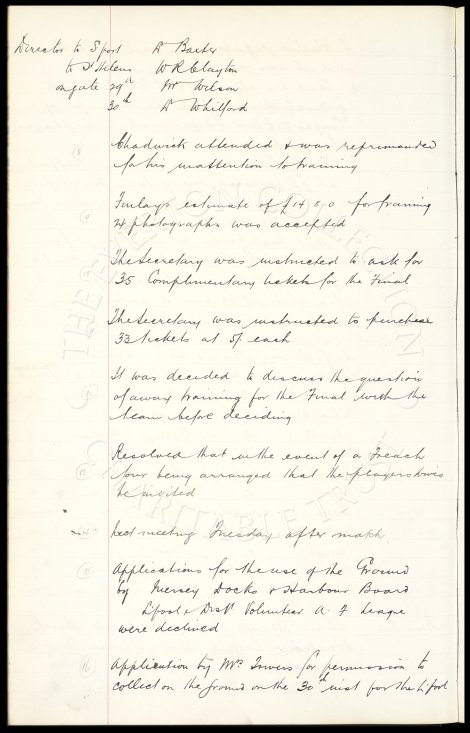 Director to Sport D Baxter
to St Helens W R Clayton
on gate 29th Mr Wilson
30th D Whitford
(8) Chadwick attended & was reprimanded
for his inattention to training
9 Finlays estimate of £14 5.0 for framing
24 photographs was accepted
The Secretary was instructed to ask for
135 Complimentary tickets for the Final
The Secretary was instructed to purchase
33 tickets at 5/ each
It was decided to discuss the question
of away training for the Final with the
team before deciding
(13) Resolved that in the event of a French
tour being arranged that the players wives
be invited
14 Next meeting Tuesday after match
(15) Applications for the use of the Ground
by Mersey Docks & Harbour Board
Lpool & Dist Volunteer A. F League
were declined
(16) Application by Mrs Towers for permission to
collect on the ground on the 30th inst for the Lpool
THE EVERTON COLLECTION
CHARITABLE TRUST